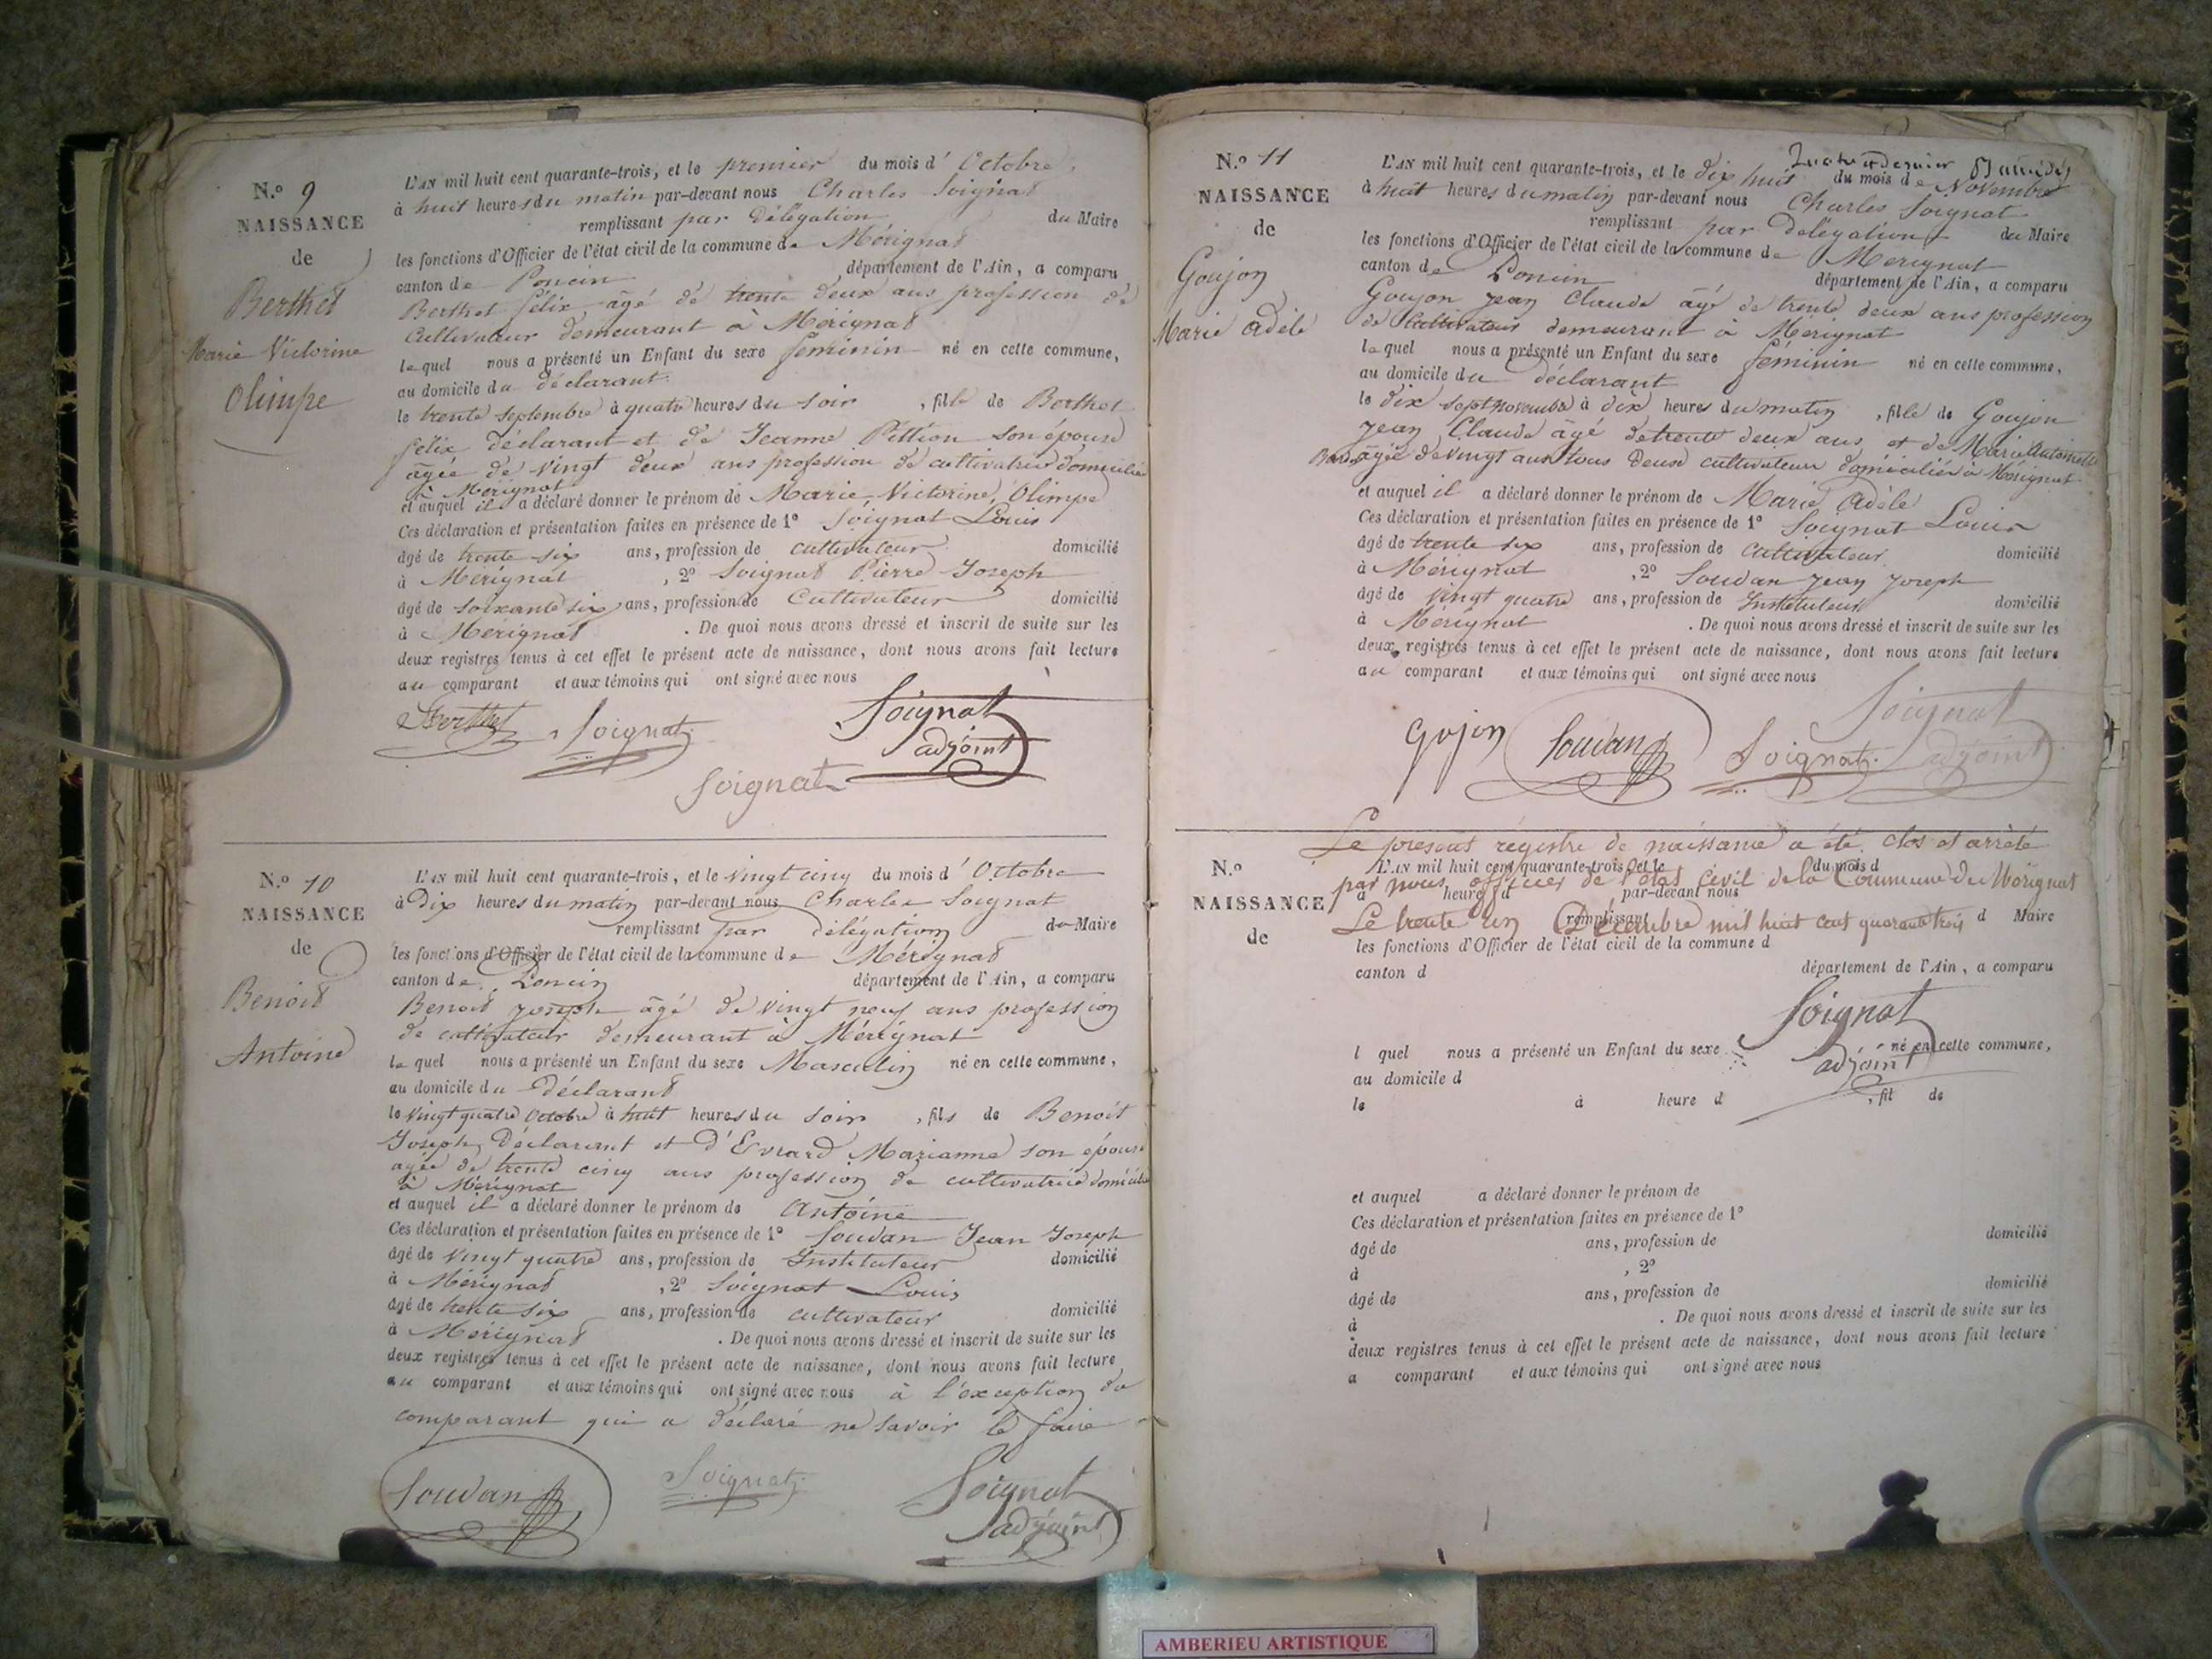 N.º 9
NAISSANCE
de
Berthet
Marie Victorine
Olimpe
L'AN mil huit cent quarante-trois, et le premier du mois d'Octobre,
à huit heures du matin par-devant nous Charles Soignat
remplissant par Délégation du Maire
les fonctions d'Officier de l'état civil de la commune de Mérignat
canton de Poncin département de l'Ain, a comparu
Berthet félix âgé de trente deux ans profession de
Cultivateur demeurant à Mérignat
lequel nous a présenté un Enfant du sexe féminin né en cette commune,
au domicile du déclarant
le trente septembre à quatre heures du soir , fille de Berthet
félix déclarant et de Jeanne Pittion son épouse
âgée de vingt deux ans profession de cultivatrice domiciliée
à Mérignat
et auquel il a déclaré donner le prénom de Marie Victorine, Olimpe
Ces déclaration et présentation faites en présence de 1º Soignat Louis
âgé de trente six ans, profession de cultivateur domicilié
à Mérignat , 2º Soignat Pierre Joseph
âgé de soixante six ans, profession de Cultivateur domicilié
à Mérignat . De quoi nous avons dressé et inscrit de suite sur les
deux registres tenus à cet effet le présent acte de naissance, dont nous avons fait lecture
au comparant et aux témoins qui ont signé avec nous
Berthet Soignat Soignat
adjoint
Soignat
N.º 10
NAISSANCE
de
Benoit
Antoine
L'AN mil huit cent quarante-trois, et le vingt cinq du mois d'Octobre
à Dix heures du matin par-devant nous Charles Soignat
remplissant par délégation du Maire
les fonctions d'Officier de l'état civil de la commune de Mérignat
canton de Poncin département de l'Ain, a comparu
Benoit joseph âgé de vingt neuf ans profession
de cultivateur demeurant à Mérignat
lequel nous a présenté un Enfant du sexe Masculin né en cette commune,
au domicile du Déclarant
le vingt quatre Octobre à huit heures du soir , fils de Benoit
Joseph Déclarant et d'Evrard Marianne son épouse
agée de trente cinq ans profession de cultivatrice domiciliée
à Mérignat
et auquel il a déclaré donner le prénom de Antoine
Ces déclaration et présentation faites en présence de 1º Soudan Jean Joseph
âgé de vingt quatre ans, profession de Instituteur domicilié
à Mérignat , 2º Soignat Louis
âgé de trente six ans, profession de cultivateur domicilié
à Mérignat . De quoi nous avons dressé et inscrit de suite sur les
deux registres tenus à cet effet le présent acte de naissance, dont nous avons fait lecture
au comparant et aux témoins qui ont signé avec nous à l'exception du
comparant qui a déclaré ne savoir le faire
Soudan Soignat Soignat
adjoint
N.º 11
NAISSANCE
de
Goujon
Marie Adèle
L'AN mil huit cent quarante-trois, et le dix huit du mois de Novembre
à huit heures du matin par-devant nous Charles Soignat
remplissant par Délégation du Maire
les fonctions d'Officier de l'état civil de la commune de Mérignat
canton de Poncin département de l'Ain, a comparu
Goujon jean Claude âgé de trente deux ans profession
de Cultivateur demeurant à Mérignat
lequel nous a présenté un Enfant du sexe féminin né en cette commune,
au domicile du déclarant
le dix sept novembre à dix heures du matin , fille de Goujon
jean Claude âgé de trente deux ans et de Marie Antoinette
âgée de vingt ans tous deux cultivateurs domiciliés à Mérignat
et auquel il a déclaré donner le prénom de Marie Adèle
Ces déclaration et présentation faites en présence de 1º Soignat Louis
âgé de trente six ans, profession de cultivateur domicilié
à Mérignat , 2º Soudan jean joseph
âgé de vingt quatre ans, profession de Instituteur domicilié
à Mérignat . De quoi nous avons dressé et inscrit de suite sur les
deux registres tenus à cet effet le présent acte de naissance, dont nous avons fait lecture
au comparant et aux témoins qui ont signé avec nous
Gojon Soudan Soignat Soignat
adjoint
Le présent régistre de naissance a été clos et arrêté
par nous officier de l'état civil de la Commune de Mérignat
Le trente un Décembre mil huit cent quarante trois
Soignat
adjoint
N.º
NAISSANCE
de
L'AN mil huit cent quarante-trois, et le du mois d
à heure d par-devant nous
remplissant d Maire
les fonctions d'Officier de l'état civil de la commune d
canton d département de l'Ain, a comparu
l quel nous a présenté un Enfant du sexe né en cette commune,
au domicile d
le à heure d , fil de
et auquel a déclaré donner le prénom de
Ces déclaration et présentation faites en présence de 1º
âgé de ans, profession de domicilié
à , 2º
âgé de ans, profession de domicilié
à . De quoi nous avons dressé et inscrit de suite sur les
deux registres tenus à cet effet le présent acte de naissance, dont nous avons fait lecture
a comparant et aux témoins qui ont signé avec nous
AMBERIEU ARTISTIQUE